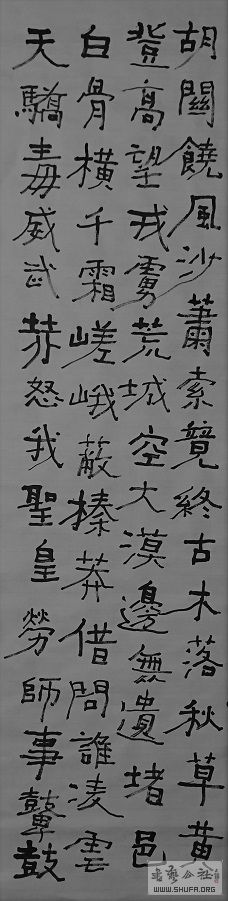 胡關饒風沙蕭索竟終古木落秋草黄
登高望戎虜荒城空大漠邊無遺堵邑
白骨橫千霜嵯峨蔽榛莽借問誰凌雲
天驕毒威武赫怒我聖皇勞師事鼙鼓
WWW.SHUFA.ORG